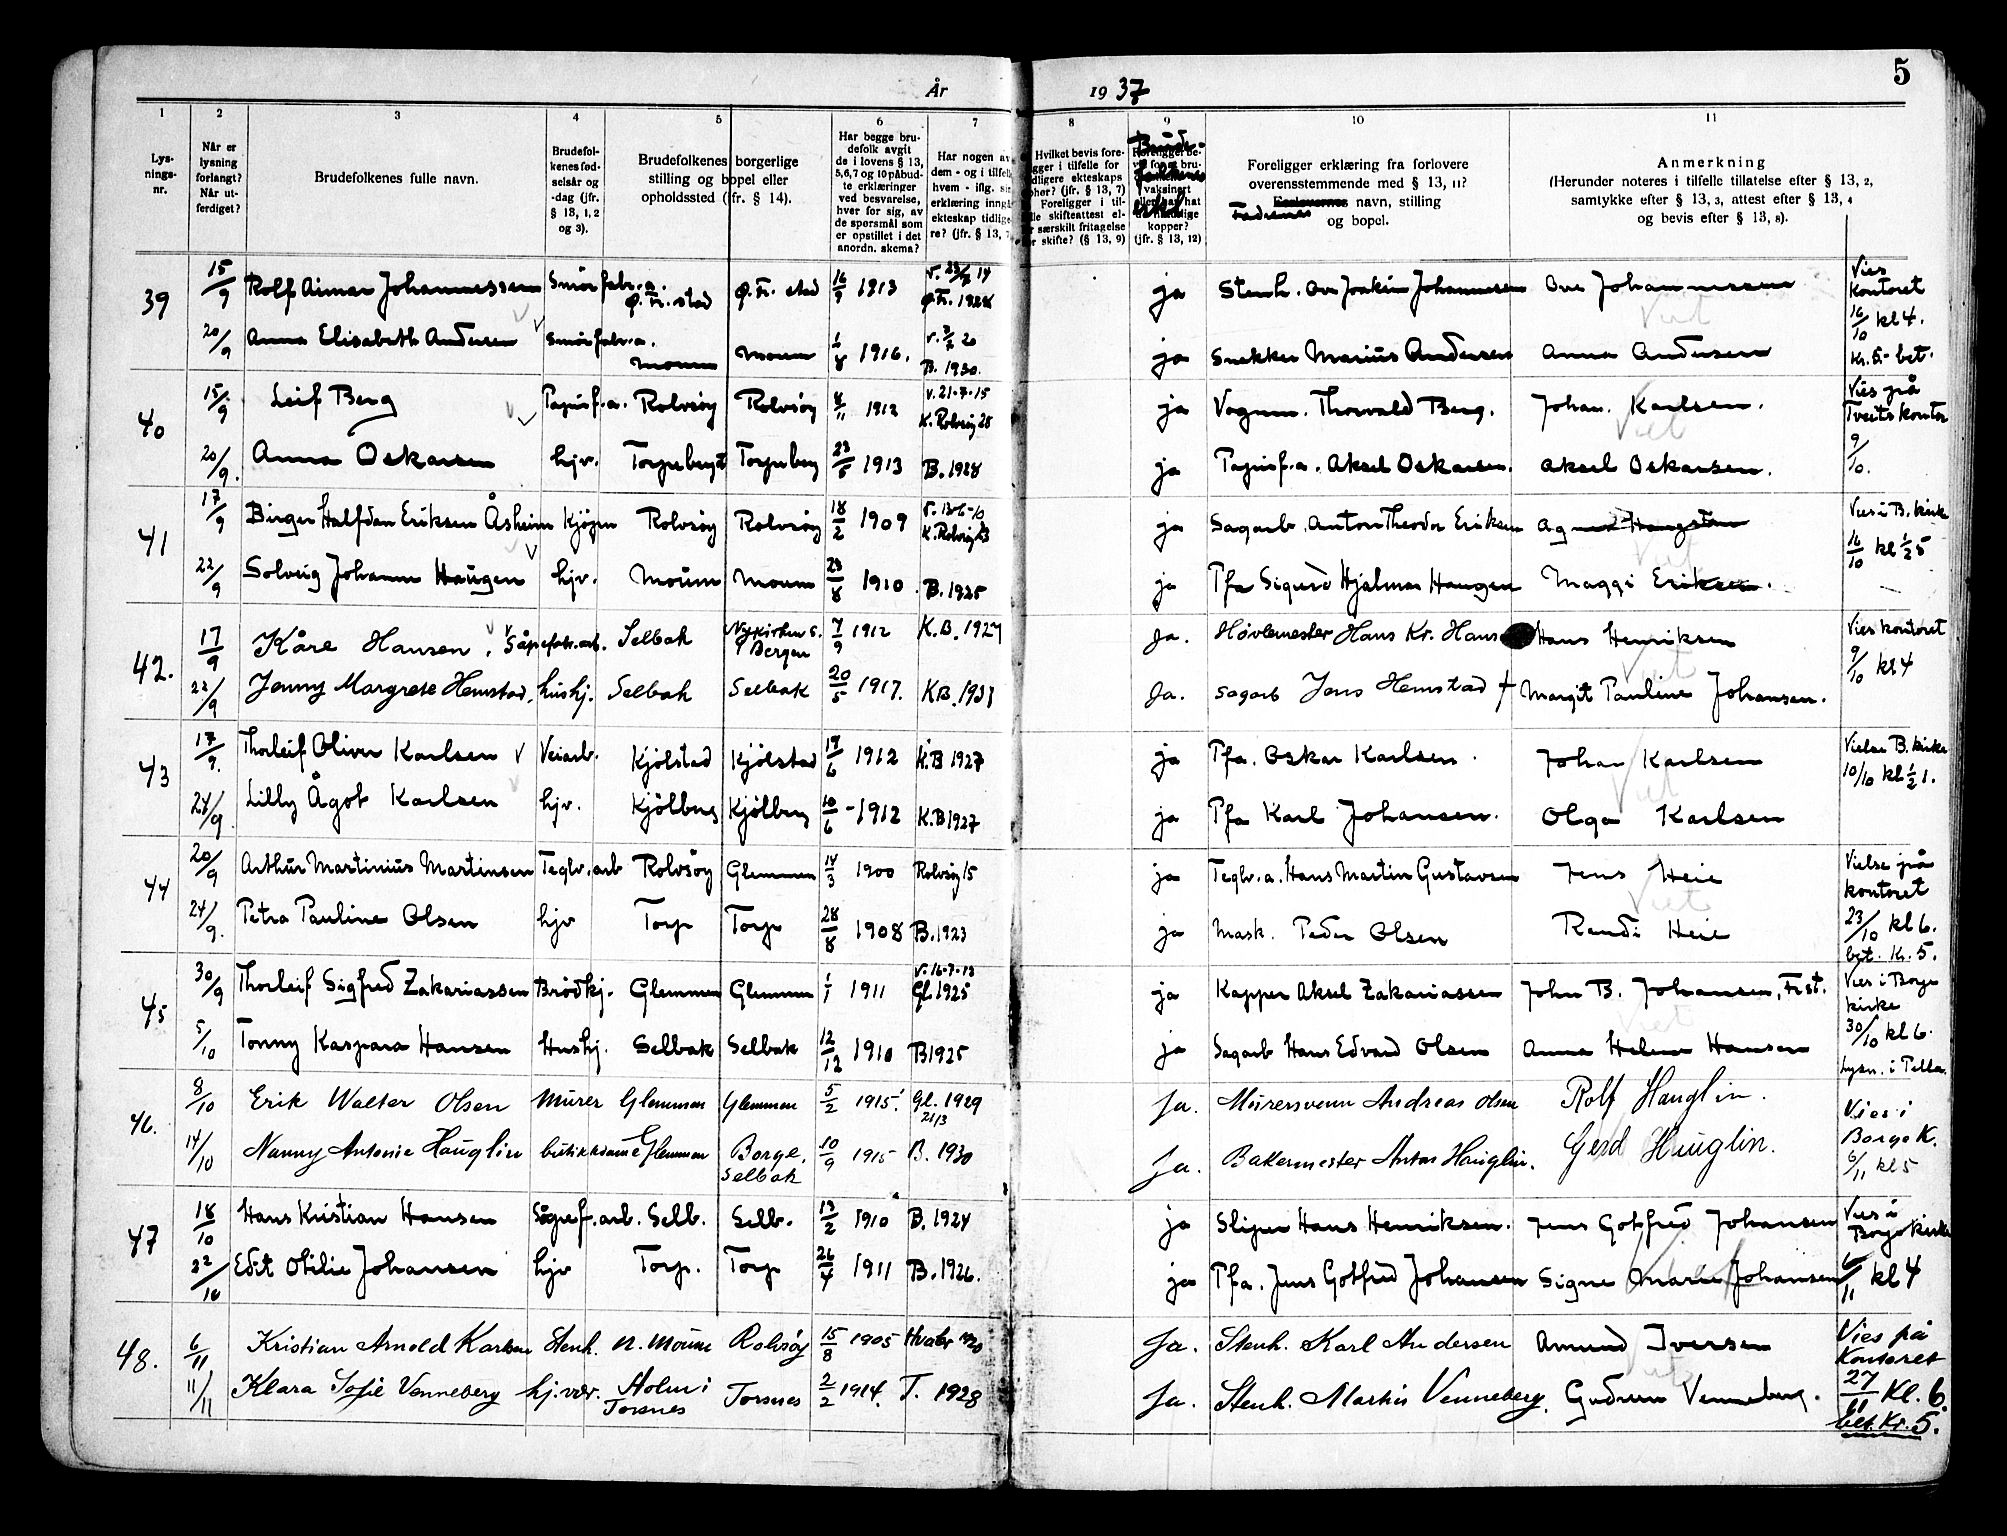 5
År 1937
1 2 3 4 5 6 7 8 9 10 11
Lys-
nings-
nr.
Når er
lysning
forlangt?
Når ut-
ferdiget?
Brudefolkenes fulle navn.
Brudefol-
kenes fød-
selsår og
-dag (jfr.
§ 13, 1, 2
og 3).
Brudefolkenes borgerlige
stilling og bopel eller
opholdssted (jfr. § 14).
Har begge bru-
defolk avgit
de i lovens § 13,
5,6,7 og 10 påbud-
te erklæringer
ved besvarelse,
hver for sig, av
de spørsmål som
er opstillet i det
anordn. skema?
Har nogen av
dem - og i tilfelle
hvem - iflg. sin
erklæring inngått
ekteskap tidlige-
re? (jfr. § 13, 7
Hvilket bevis fore-
gger i tilfelle for
dligere ekteskaps
pher? (jfr. § 13, 7)
Foreligger i til-
lle skifteattest el-
r særskilt fritagelse
r skifte? (§ 13, 9)
Brude-
folkenes
vaksinert
kopper?
(jfr. § 13, 12)
Foreligger erklæring fra forlovere
overensstemmende med § 13, 11?
Fadrenes
Forlovernes navn, stilling
og bopel.
Anmerkning
(Herunder noteres i tilfelle tillatelse efter § 13, 2,
samtykke efter § 13, 3, attest efter § 13, 4
og bevis efter § 13, 8).
39 15/9 Rolf Aimar Johannessen Smørfabr.a. Ø.Fr.stad Ø.Fr.stad 16/9 1913 v. 14 Ø.Fr. 1928 ja Stenh. Ove Joakim Johannesen Ove Johannessen Vies kontoret
20/9 Anna Elisabeth Andersen Smørfabr.a. Moum Moum 1/8 1916. v. 3/7 20 B. 1930. ja Snekker Marius Andersen Anna Andersen 16/10 kl 4. Kr. 5.- bet.
40 15/9 Leif Berg Papirf.a. Rolvsøy Rolvsøy 4/11 1912 v. 21-7-15 K. Rolvsøy 28 ja Vognm. Thorvald Berg. Johan Karlsen. Vies på Tveits kontor
20/9. Anna Oskarsen hjv. Torpeberget Torpeberg 23/5 1913 B. 1928 ja Papirf.a. Aksel Oskarsen. Aksel Oskarsen. 9/10.
41 17/9 Birger Halfdan Eriksen Åsheim Kjøpm Rolvsøy Rolvsøy 18/2 1909 v. 13-6-10 K. Rolvsøy 23 ja Sagarb. Anton Theodor Eriksen Agnar Haugsten Vies i B. kirke
22/9 Solveig Johanne Haugen hjv. Moum Moum 23/8 1910. B. 1925 ja Pfa Sigurd Hjalmar Haugen Maggi Eriksen. 16/10 kl 1/2 5
42. 17/9 Kåre Hansen, Såpefabr.arb. Selbak Nykirken s. Bergen 7/9 1912 K.B. 1927 Ja. Høvlemester Hans Kr. Hans Hans Henriksen Vies kontoret
22/9 Jenny Margrete Hemstad, hushj. Selbak Selbak 20/5 1917. KB. 1931 Ja. Sagarb Jens Hemstad † Margit Pauline Johansen. 9/10 kl 4
43 17/9. Thorleif Oliver Karlsen Veiarb. Kjølstad Kjølstad 19/6 1912 K.B 1927 ja Pfa. Oskar Karlsen. Johan Karlsen Vielse B. kirke
24/9 Lilly Ågot Karlsen hjv. Kjølberg Kjølberg 10/6 - 1912 K.B 1927 ja Pfa Karl Johansen. Olga Karlsen 10/10 kl 1/2 1.
44 20/9 Arthur Martinius Martinsen Teglv.arb Rolvsøy Glemmen 14/3 1900 Rolvsøy 15 ja Teglv.a. Hans Martin Gustavsen Jens Heie Vielse på kontoret
24/9. Petra Pauline Olsen hjv Torp Torp 28/8 1908 B. 1923 ja Mask. Peder Olsen Randi Heie 23/10 kl 6. bet. Kr. 5.
45 30/9 Thorleif Sigfred Zakariassen Brødkj. Glemmen Glemmen 1/1 1911 v. 16-7-13 Gl 1925 ja Kapper Aksel Zakariassen John B. Johansen, Frst. Vies i Borge kirke
5/10 Tonny Kaspara Hansen Hushj. Selbak Selbak 12/12 1910 B 1925 ja Sagarb Hans Edvard Olsen Anna Helene Hansen 30/10 kl 6.
46. 8/10 Erik Walter Olsen Murer Glemmen Glemmen 5/2 1915. Gl. 1929 21/3 Ja. Murersvenn Andreas Olsen Rolf Hauglin. Vies i
14/10 Nanny Antonie Hauglin butikkdame Glemmen Borge, Selbak 10/9 1915 B. 1930 Ja. Bakermester Anton Hauglin. Gerd Hauglin. Borge K. 6/11 kl 5
47 18/10 Hans Kristian Hansen Såpef.arb. Selb. Selb. 13/2 1910 B. 1924 ja Sliper Hans Henriksen. Jens Gotfred Johansen Vies i Borge kirke
22/10 Edit Otilie Johansen hjv Torp. Torp 26/4 1911 B. 1926. ja Pfa. Jens Gotfred Johansen Signe Marie Johansen 6/11 kl 4
48. 6/11 Kristian Arnold Karlsen Stenh. N. Moum Rolvsøy 15/8 1905 Hvaler 1920 Ja. Stenh. Karl Andersen Amund Iversen Vies på Kontoret
11/11 Klara Sofie Venneberg hj.vær. Holm i Torsnes Torsnes 2/2 1914. T. 1928 Ja. Stenh. Martin Venneberg. Gudrun Venneberg. 27/11 Kl. 6. bet. Kr. 5.